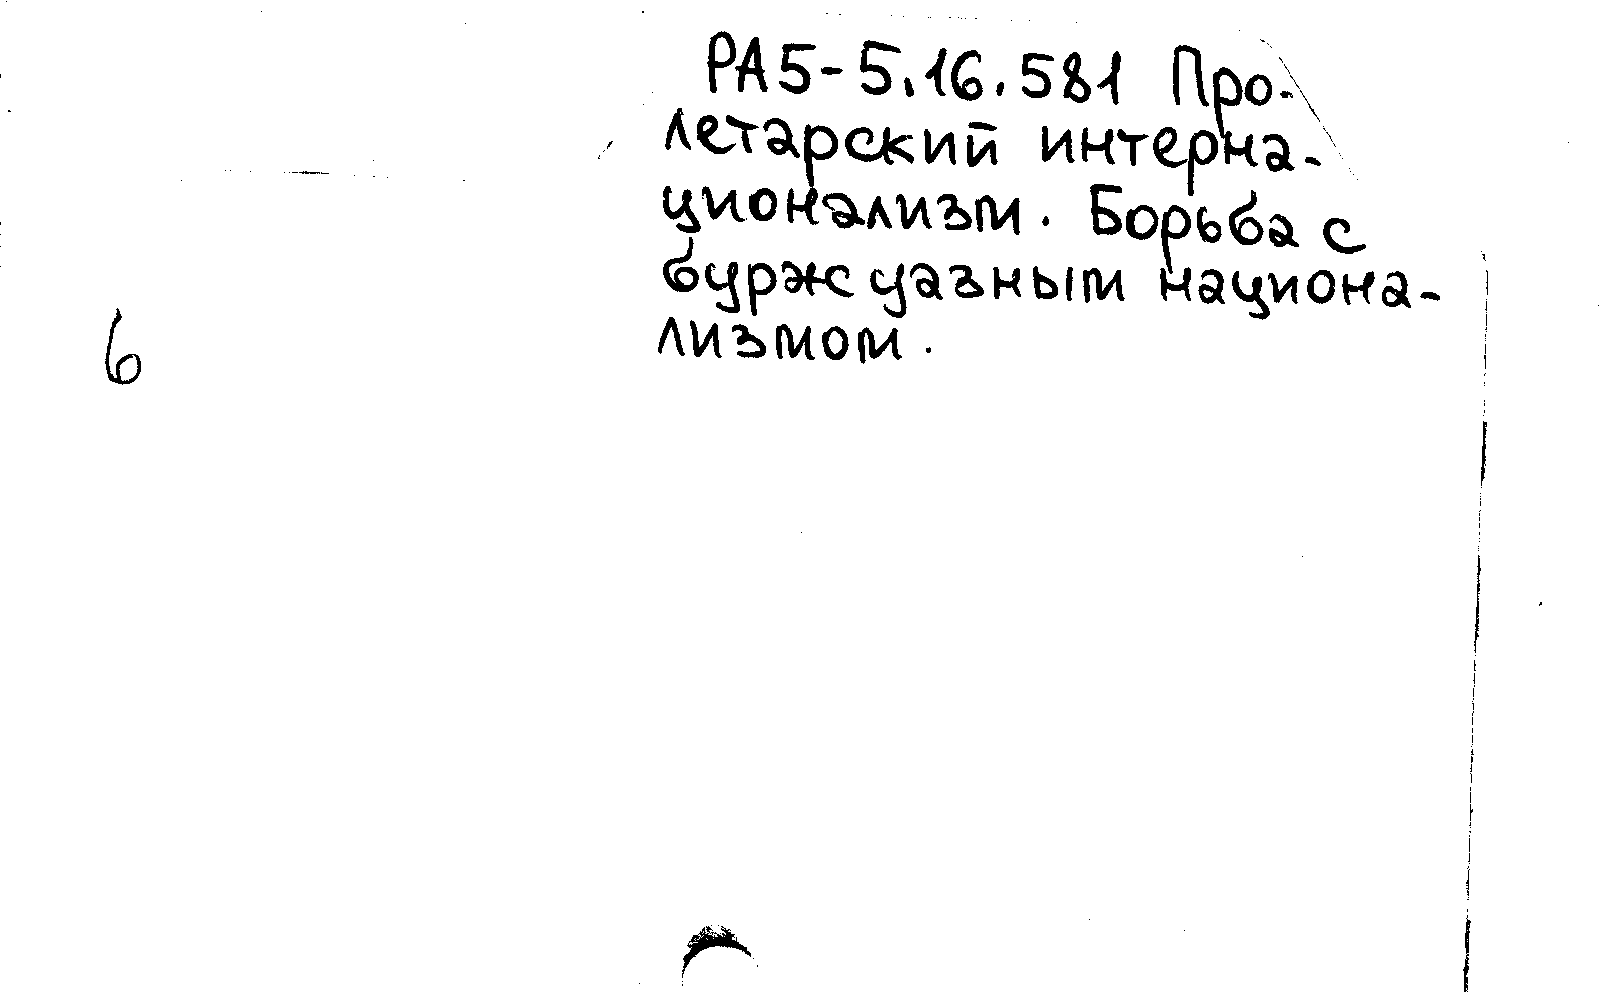 РА5-5.16.581 Про-
летарский интерна-
ционализм. Борьба с
буржуазным национа-
лизмом.
6